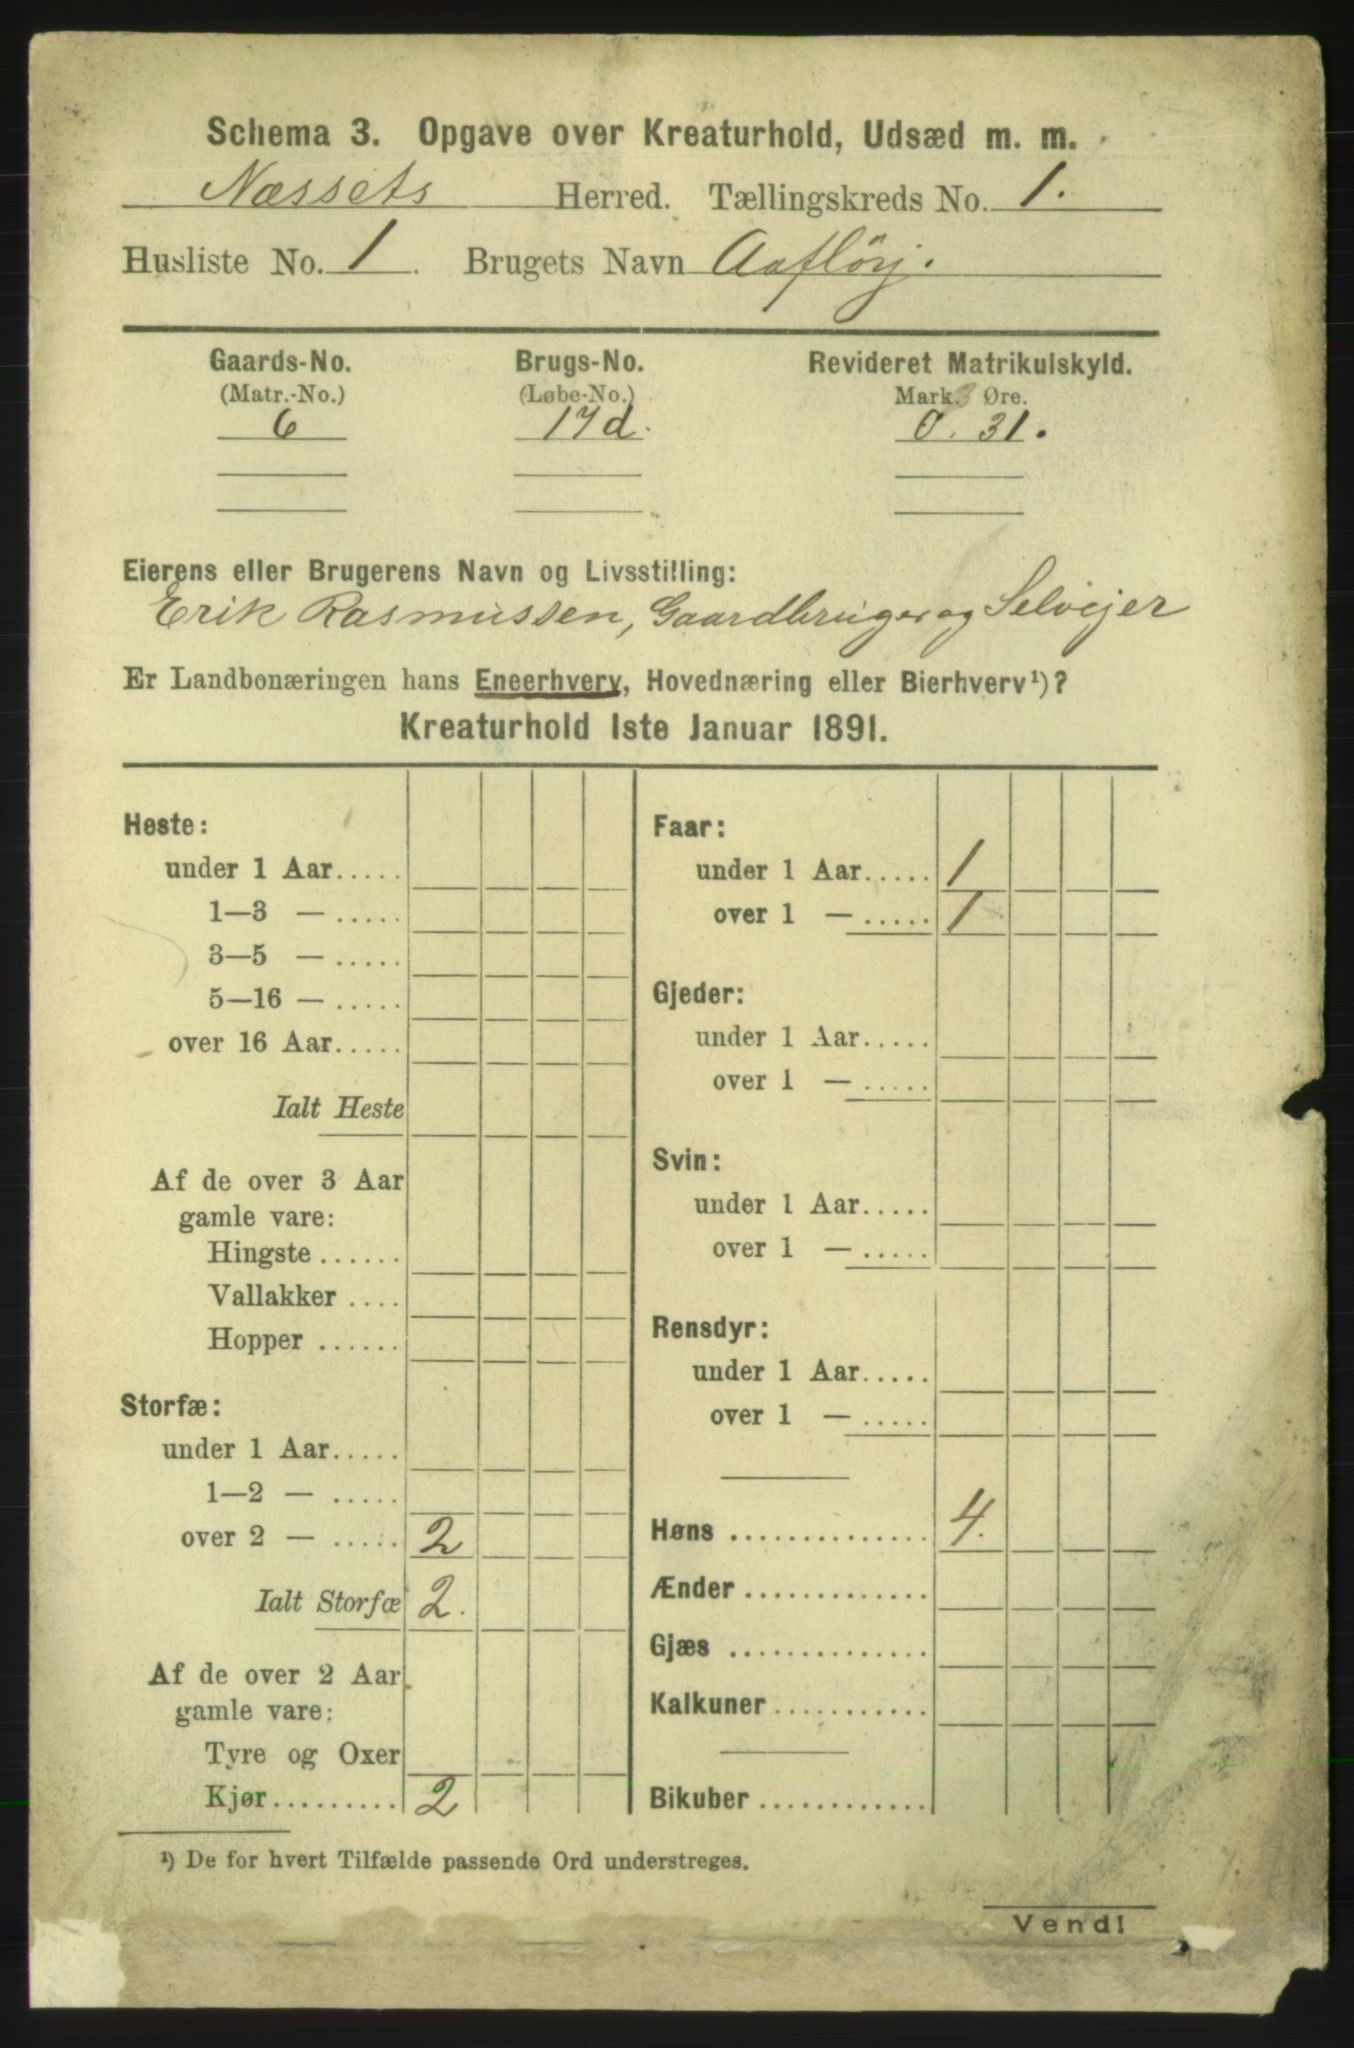 Schema 3. Opgave over Kreaturhold, Udsæd m. m.
Næssets Herred. Tællingskreds No. 1.
Husliste No. 1. Brugets Navn Aafløj.
Gaards-No. Brugs-No. Revideret Matrikulskyld.
(Matr.-No.) (Løbe-No.) Mark. Øre.
6 17d. 0. 31.
Eierens eller Brugerens Navn og Livsstilling:
Erik Rasmussen, Gaardbruger og Selvejer
Er Landbonæringen hans Eneerhverv, Hovednæring eller Bierhverv¹)?
Kreaturhold 1ste Januar 1891.
Heste:
under 1 Aar.....
1—3 — .....
3—5 — .....
5—16 — .....
over 16 Aar.....
Ialt Heste
Af de over 3 Aar
gamle vare:
Hingste ......
Vallakker ....
Hopper ......
Storfæ:
under 1 Aar.....
1—2 — .....
over 2 — ..... 2
Ialt Storfæ 2.
Af de over 2 Aar
gamle vare:
Tyre og Oxer
Kjør......... 2
Faar:
under 1 Aar..... 1
over 1 — ..... 1
Gjeder:
under 1 Aar.....
over 1 — .....
Svin:
under 1 Aar.....
over 1 — .....
Rensdyr:
under 1 Aar.....
over 1 — .....
Høns .............. 4.
Ænder .............
Gjæs ..............
Kalkuner ...........
Bikuber ............
¹) De for hvert Tilfælde passende Ord understreges.
Vend!